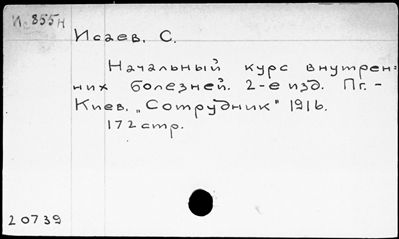 И-855н
Исаев. С.
Начальный курс внутрен-
них болезней. 2-е изд. Пг.-
Киев. „Сотрудник" 1916.
172 стр.
20739